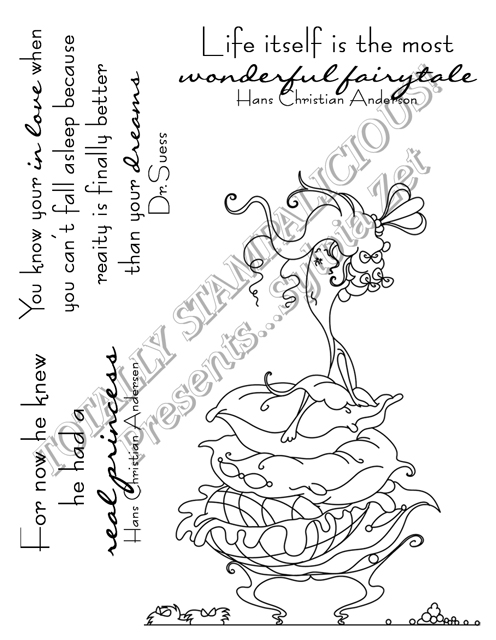 Life itself is the most
wonderful fairytale
Hans Christian Anderson
You know your in love when
you can't fall asleep because
reaity is finally better
than your dreams
Dr. Suess
For now he knew
he had a
real princess
Hans Christian Andersen
TOTALLY STAMPALICIOUS!
Presents...Sylvia Zet